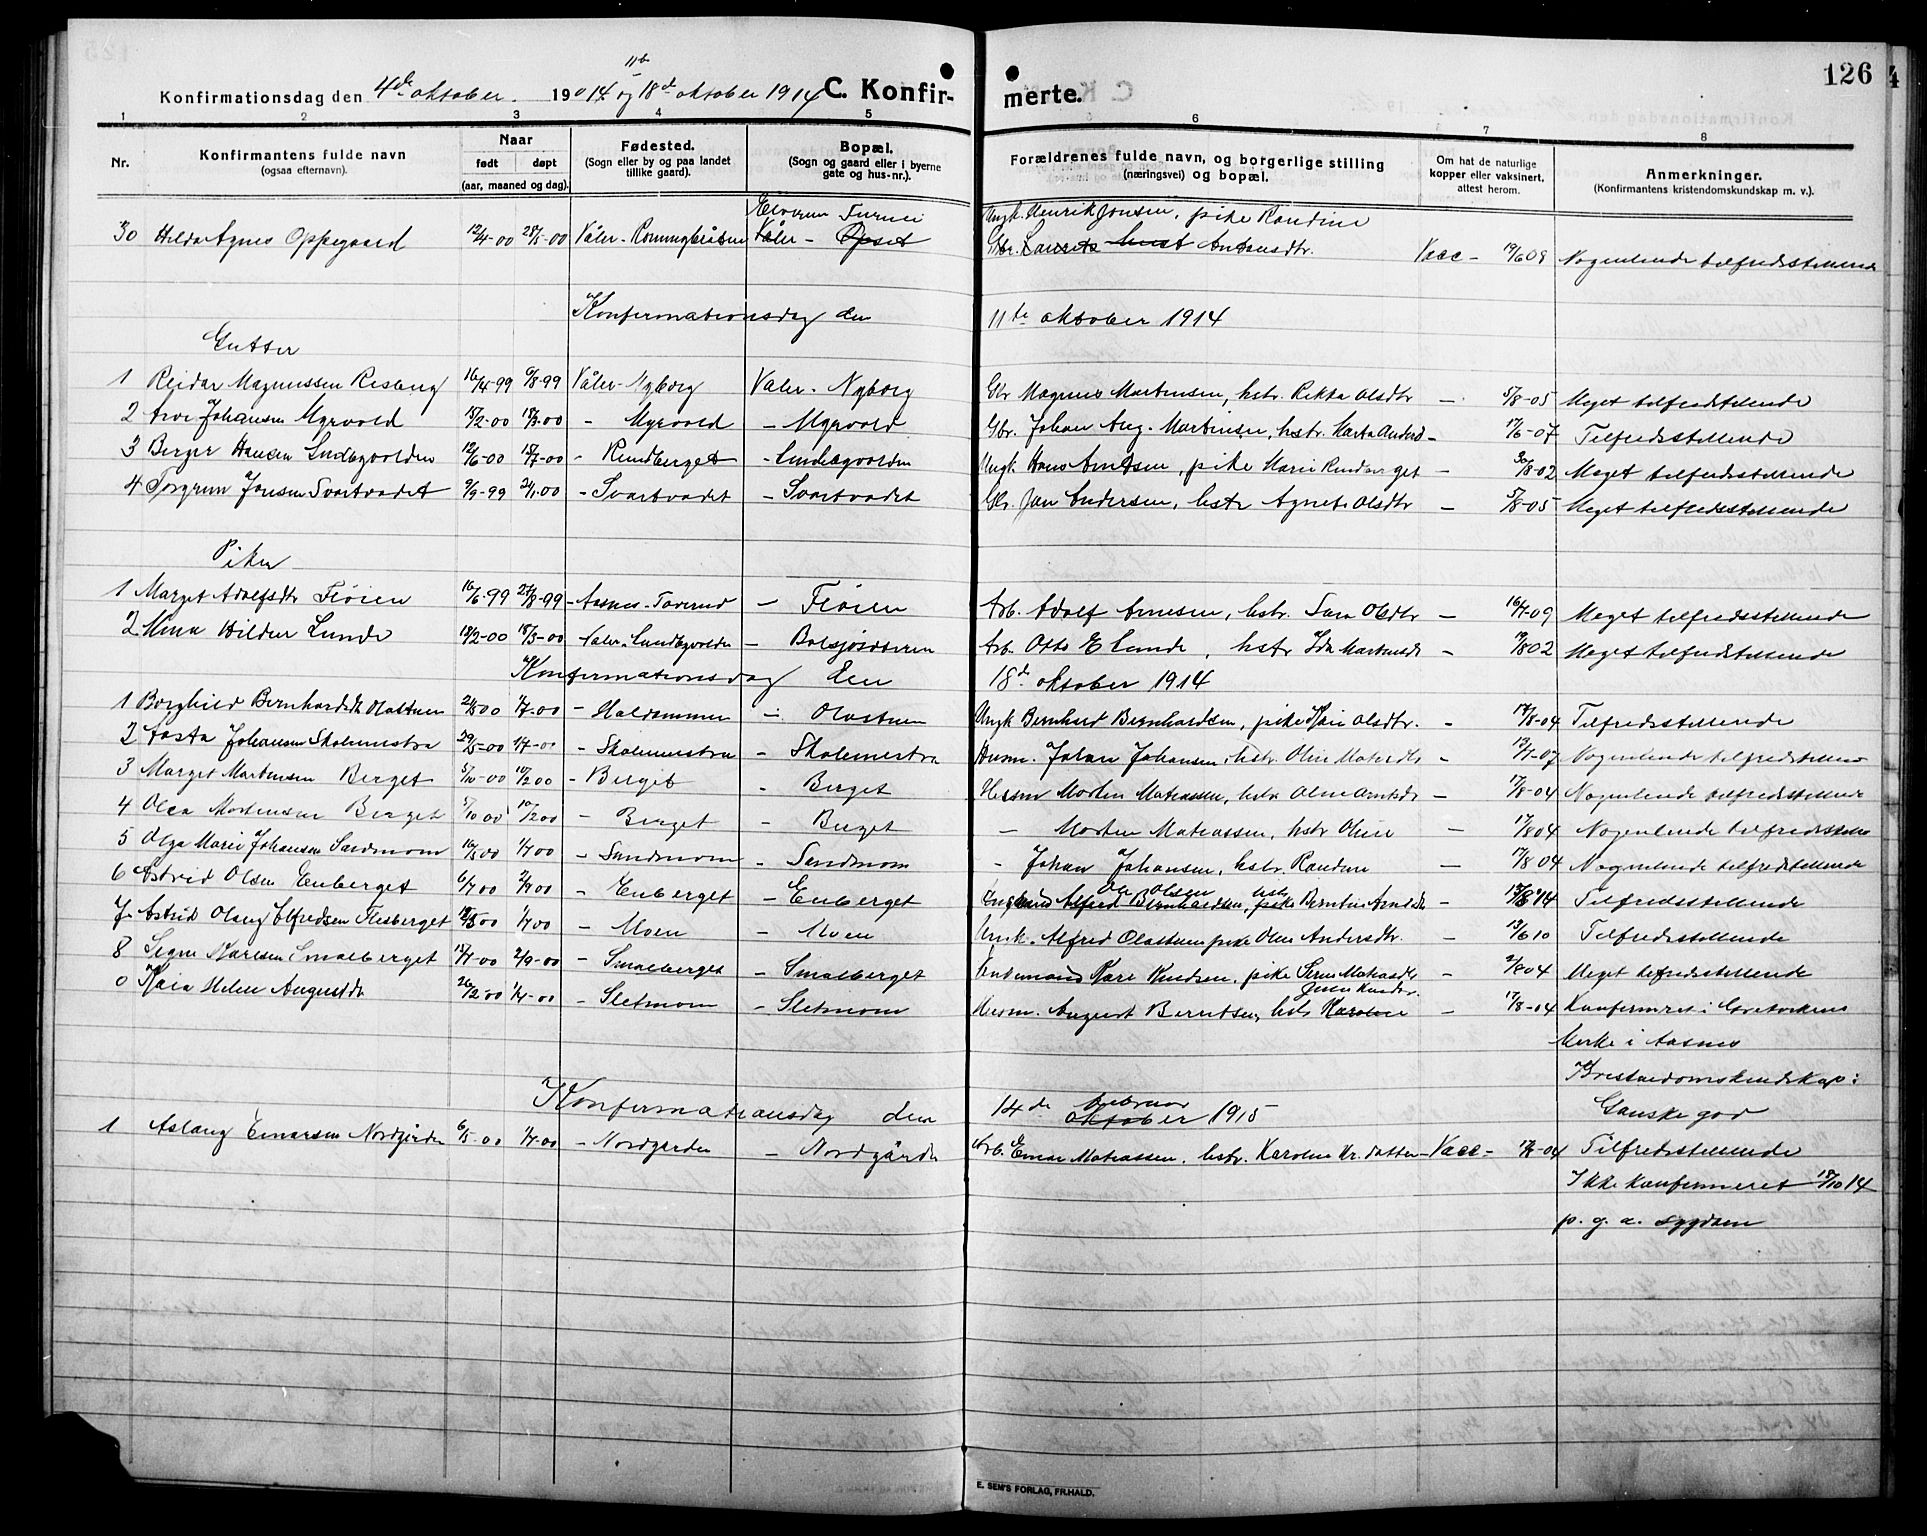 126
11te
Konfirmationsdag den 4de oktober 1914 og 18de oktober 1914 C. Konfir- merte.
1 2 3 4 5 6 7 8
Nr. Konfirmantens fulde navn (ogsaa efternavn). Naar født døpt (aar, maaned og dag). Fødested. (Sogn eller by og paa landet tillike gaard). Bopæl. (Sogn og gaard eller i byerne gate og hus-nr.). Forældrenes fulde navn, og borgerlige stilling (næringsvei) og bopæl. Om hat de naturlige kopper eller vaksinert, attest herom. Anmerkninger. (Konfirmantens kristendomskundskap m. v.).
Elverum Ungk. Henrik Jonsen, pike Randine
30 Hilda Agnes Oppegaard 12/4-00 Våler - Våler - Opset Antonsdtr. Vacc - 19/6 09 Nogenlunde tilfredsstillende
Konfirmationsdag den 11te oktober 1914
Gutter
1 Reidar Magnussen Risberg 16/4-99 6/8-99 Våler - Nyborg Våler - Nyborg Gbr Magnus Martinsen, hstr. Rikka Olsdtr - 5/8-05 Meget tilfredstillende
2 Arve Johansen Myrvold 15/2-00 18/3-00 - Myrvold - Myrvold Gbr. Johan Aug. Martinsen, hstr. Marta Andersd - 17/6-07 Tilfredsstillende
3 Berger Hansen Lindbgvolden 12/6-00 15/7-00 - Rundberget - Lindbgvolden Ungk. Hans Arntsen, pike Marie Rundberget - 30/8-02 Meget tilfredsstillende
4 Torgrim Jonsen Svartvadet 9/9-99 21/1-00 - Svartvadet - Svartvadet Gbr. Jon Andersen, hstr Agnete Olsdtr - 5/8-05 Meget tilfredsstillende
Piker
1 Marget Adolfsdtr Fløien 16/6-99 27/8-99 - Aasnes - Taverud - Fløien Arb. Adolf Arnesen, hstr. Sara Olsdtr - 16/7-09 Meget tilfredsstillende
2 Mina Hildur Lunde 18/2-00 18/3-00 - Våler. Lundbgvolden - Arb. Otto E Lunde, hstr Ida Martinsdr - 19/8 02 Meget tilfredstillende
Konfirmationsdag den 18de oktober 1914
1 Borghild Bernhardsdtr Olastuen 2/5 00 1/7-00 - Haldammen - Olastuen Ungk Bernhard Bernhardsen, pike Kari Olsdtr. - 17/8-04 Tilfredsstillende
2 Aasta Johansen Skolemestra 29/5-00 1/7-00 - Skolemestra - Skolemestra Husm. Johan Johansen hstr. Oline - 17/7-07 Nogenlunde tilfredstillende
3 Marget Mortensen Berget 5/10-00 10/12 00 - Berget - Berget Husm Morten Matiassen, hstr Oline Arntsdr - 17/8-04 Nogenlunde tilfredstillende
4 Olea Mortensen Berget 5/10 00 10/12 00 - Berget - Berget - Morten Matiassen, hstr Oline - 17/8 04 Nogenlunde tilfredsstill
5 Olga Marie Johansen Sandmom 16/5 00 1/7 00 - Sandmom - Sandmom - Johan Johansen, hstr. Randine - 17/8 04 Nogenlunde tilfredstillende
Ole Olsen hstr
6 Astrid Olsen Enberget 6/7 00 2/9 00 - Enberget - Enberget Alfred Bernhardsen, pike Berntine - Tilfredsstillende
7. Astrid Olaug Alfredsen Flesberget 1/7 00 - Moen - Moen Ungk. Alfred Olastuen pike Oline Andersdtr. - 13/6 10 Tilfredsstillende
8 Signe Karesen Smalberget 15/7-00 2/9-00 - Smalberget - Smalberget Kare Knudsen, pike Matiasdr - 2/8 04 Meget tilfredsstillende
Knudsd.
0 Kaia Helene Augustdr 26/2 00 1/4-00 - Sletmom - Sletmom Husm. August Berntsen, hstr Karoline - 17/8-04 Konfirmeret i
kirke i Aasnes
Kristendomskundskap:
Ganske god
Konfirmationsdag den 14de februar oktober 1915
1 Aslaug Einarsen Nordgården 6/5-00 1/7-00 - Nordgården - Nordgården Arb. Einar Matiassen, hstr. Karoline Kr. datter - Vacc - 17/8-04 Tilfredsstillende
Ikke konfirmeret 18/10 14
p. g. a. sygdom
E. SEM'S FORLAG, FR.HALD.